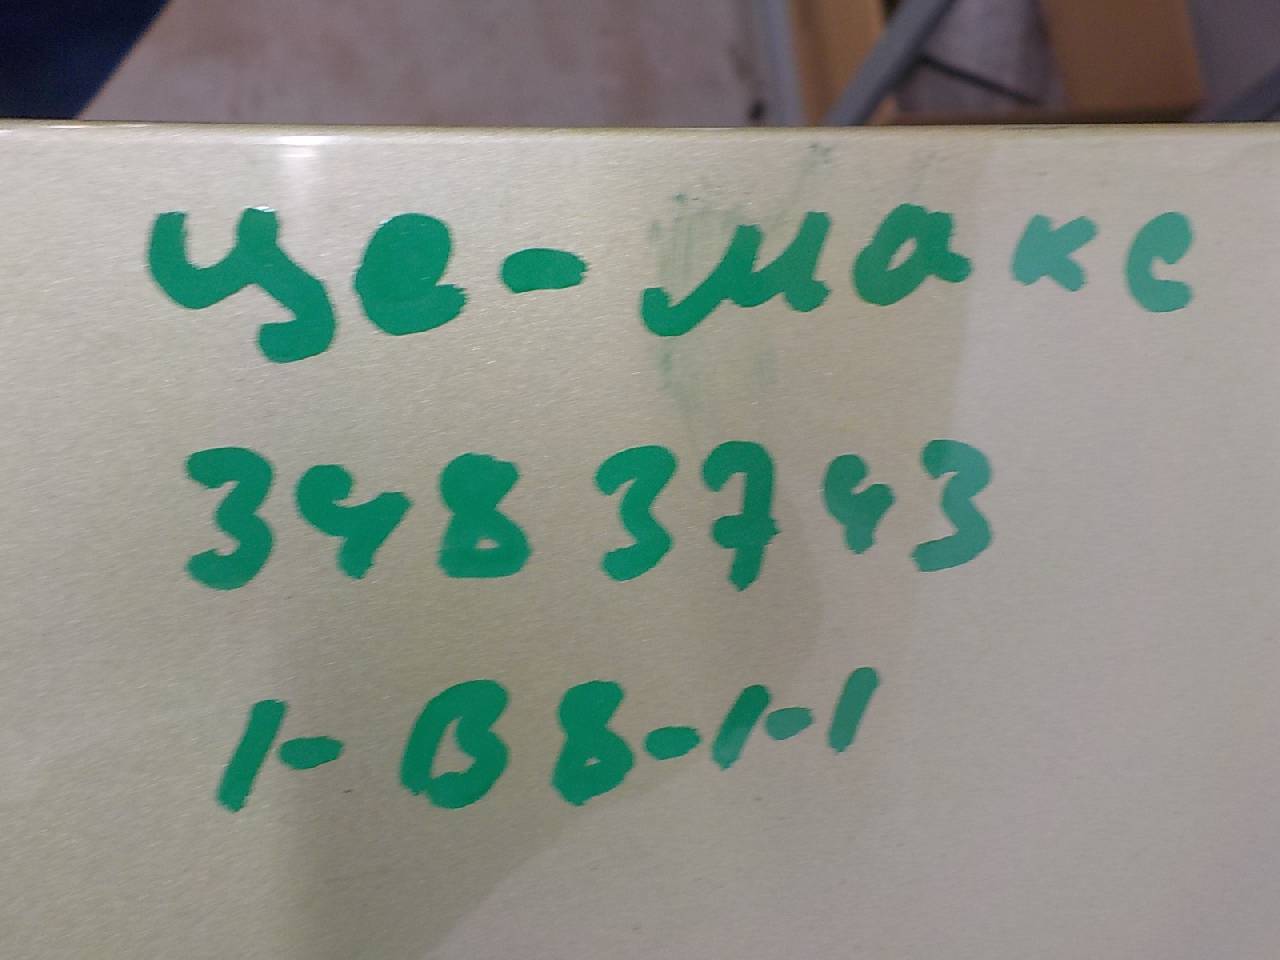 це-макс
3483743
1-В8-1-1